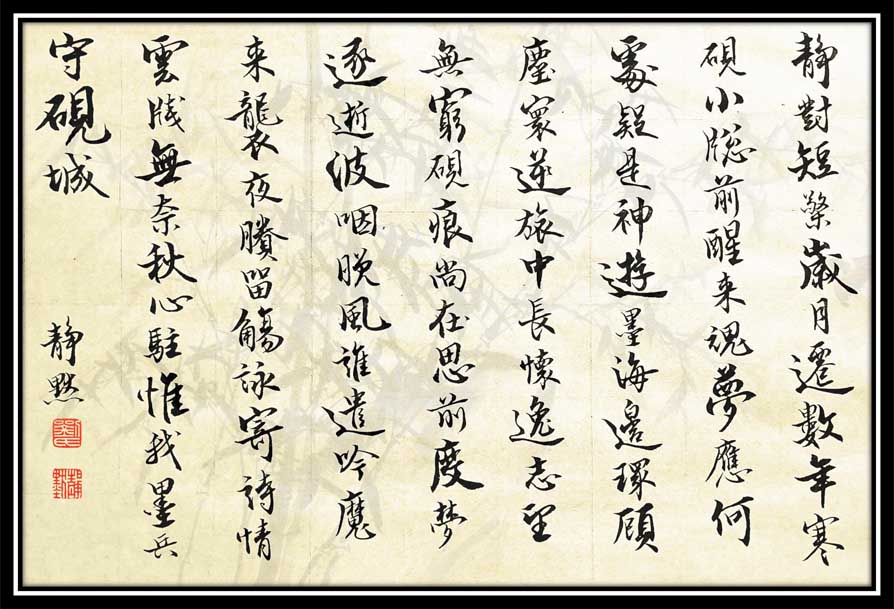 靜對短檠歲月遷數年寒
硯小牕前醒來魂夢應何
處疑是神遊墨海邊環顧
塵寰逆旅中長懷逸志望
無窮硯痕尚在思前度梦
逐逝波咽晚風誰遣吟魔
来襲夜賸留觴詠寄詩情
雲牋無奈秋心駐惟我墨兵
守硯城
静默